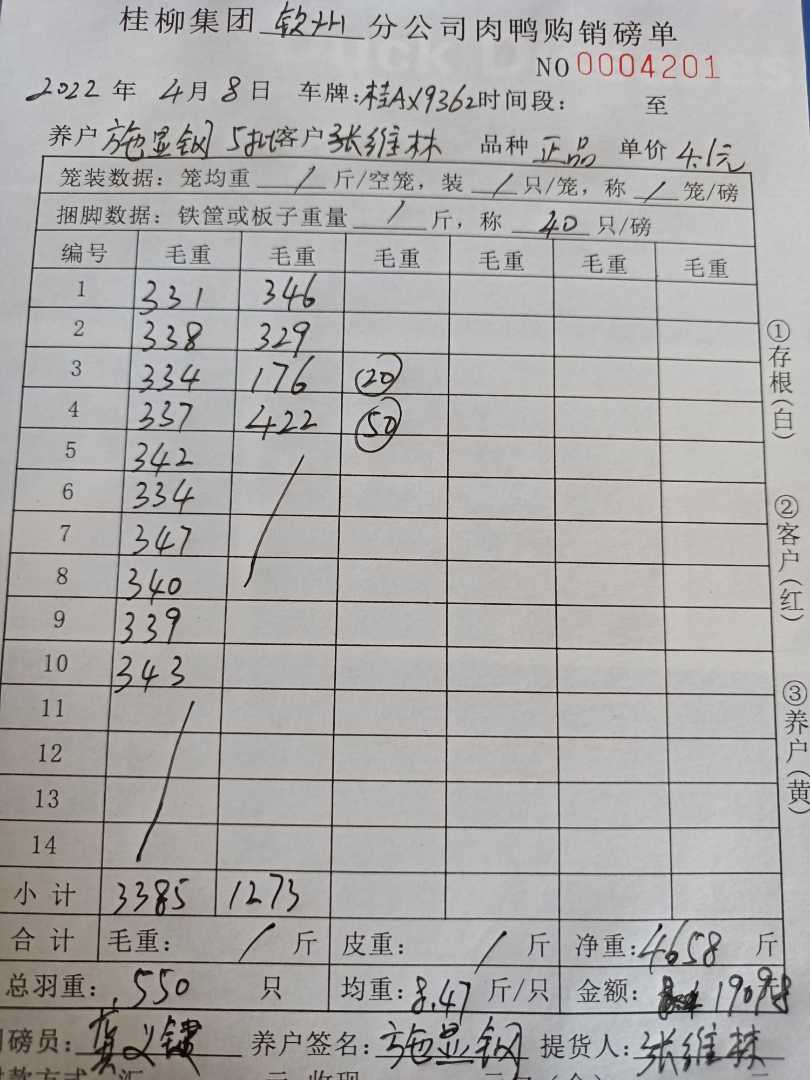 桂柳集团 钦州 分公司肉鸭购销磅单
NO 0004201
2022 年 4月 8日 车牌:桂AX9362 时间段: 至
养户 施显钢 5批 客户 张维林 品种 正品 单价 4.1元
笼装数据: 笼均重 / 斤/空笼, 装 / 只/笼, 称 / 笼/磅
捆脚数据: 铁筐或板子重量 / 斤, 称 40 只/磅
编号 毛重 毛重 毛重 毛重 毛重 毛重
1 331 346
2 338 329
3 334 176 20
4 337 422 50
5 342
6 334
7 347
8 340
9 339
10 343
11
12
13
14
小计 3385 1273
合计 毛重: / 斤 皮重: / 斤 净重:4658 斤
总羽重: 550 只 均重: 8.47 斤/只 金额: 19098
磅员: 养户签名: 施显钢 提货人: 张维林
①存根(白)
②客户(红)
③养户(黄)